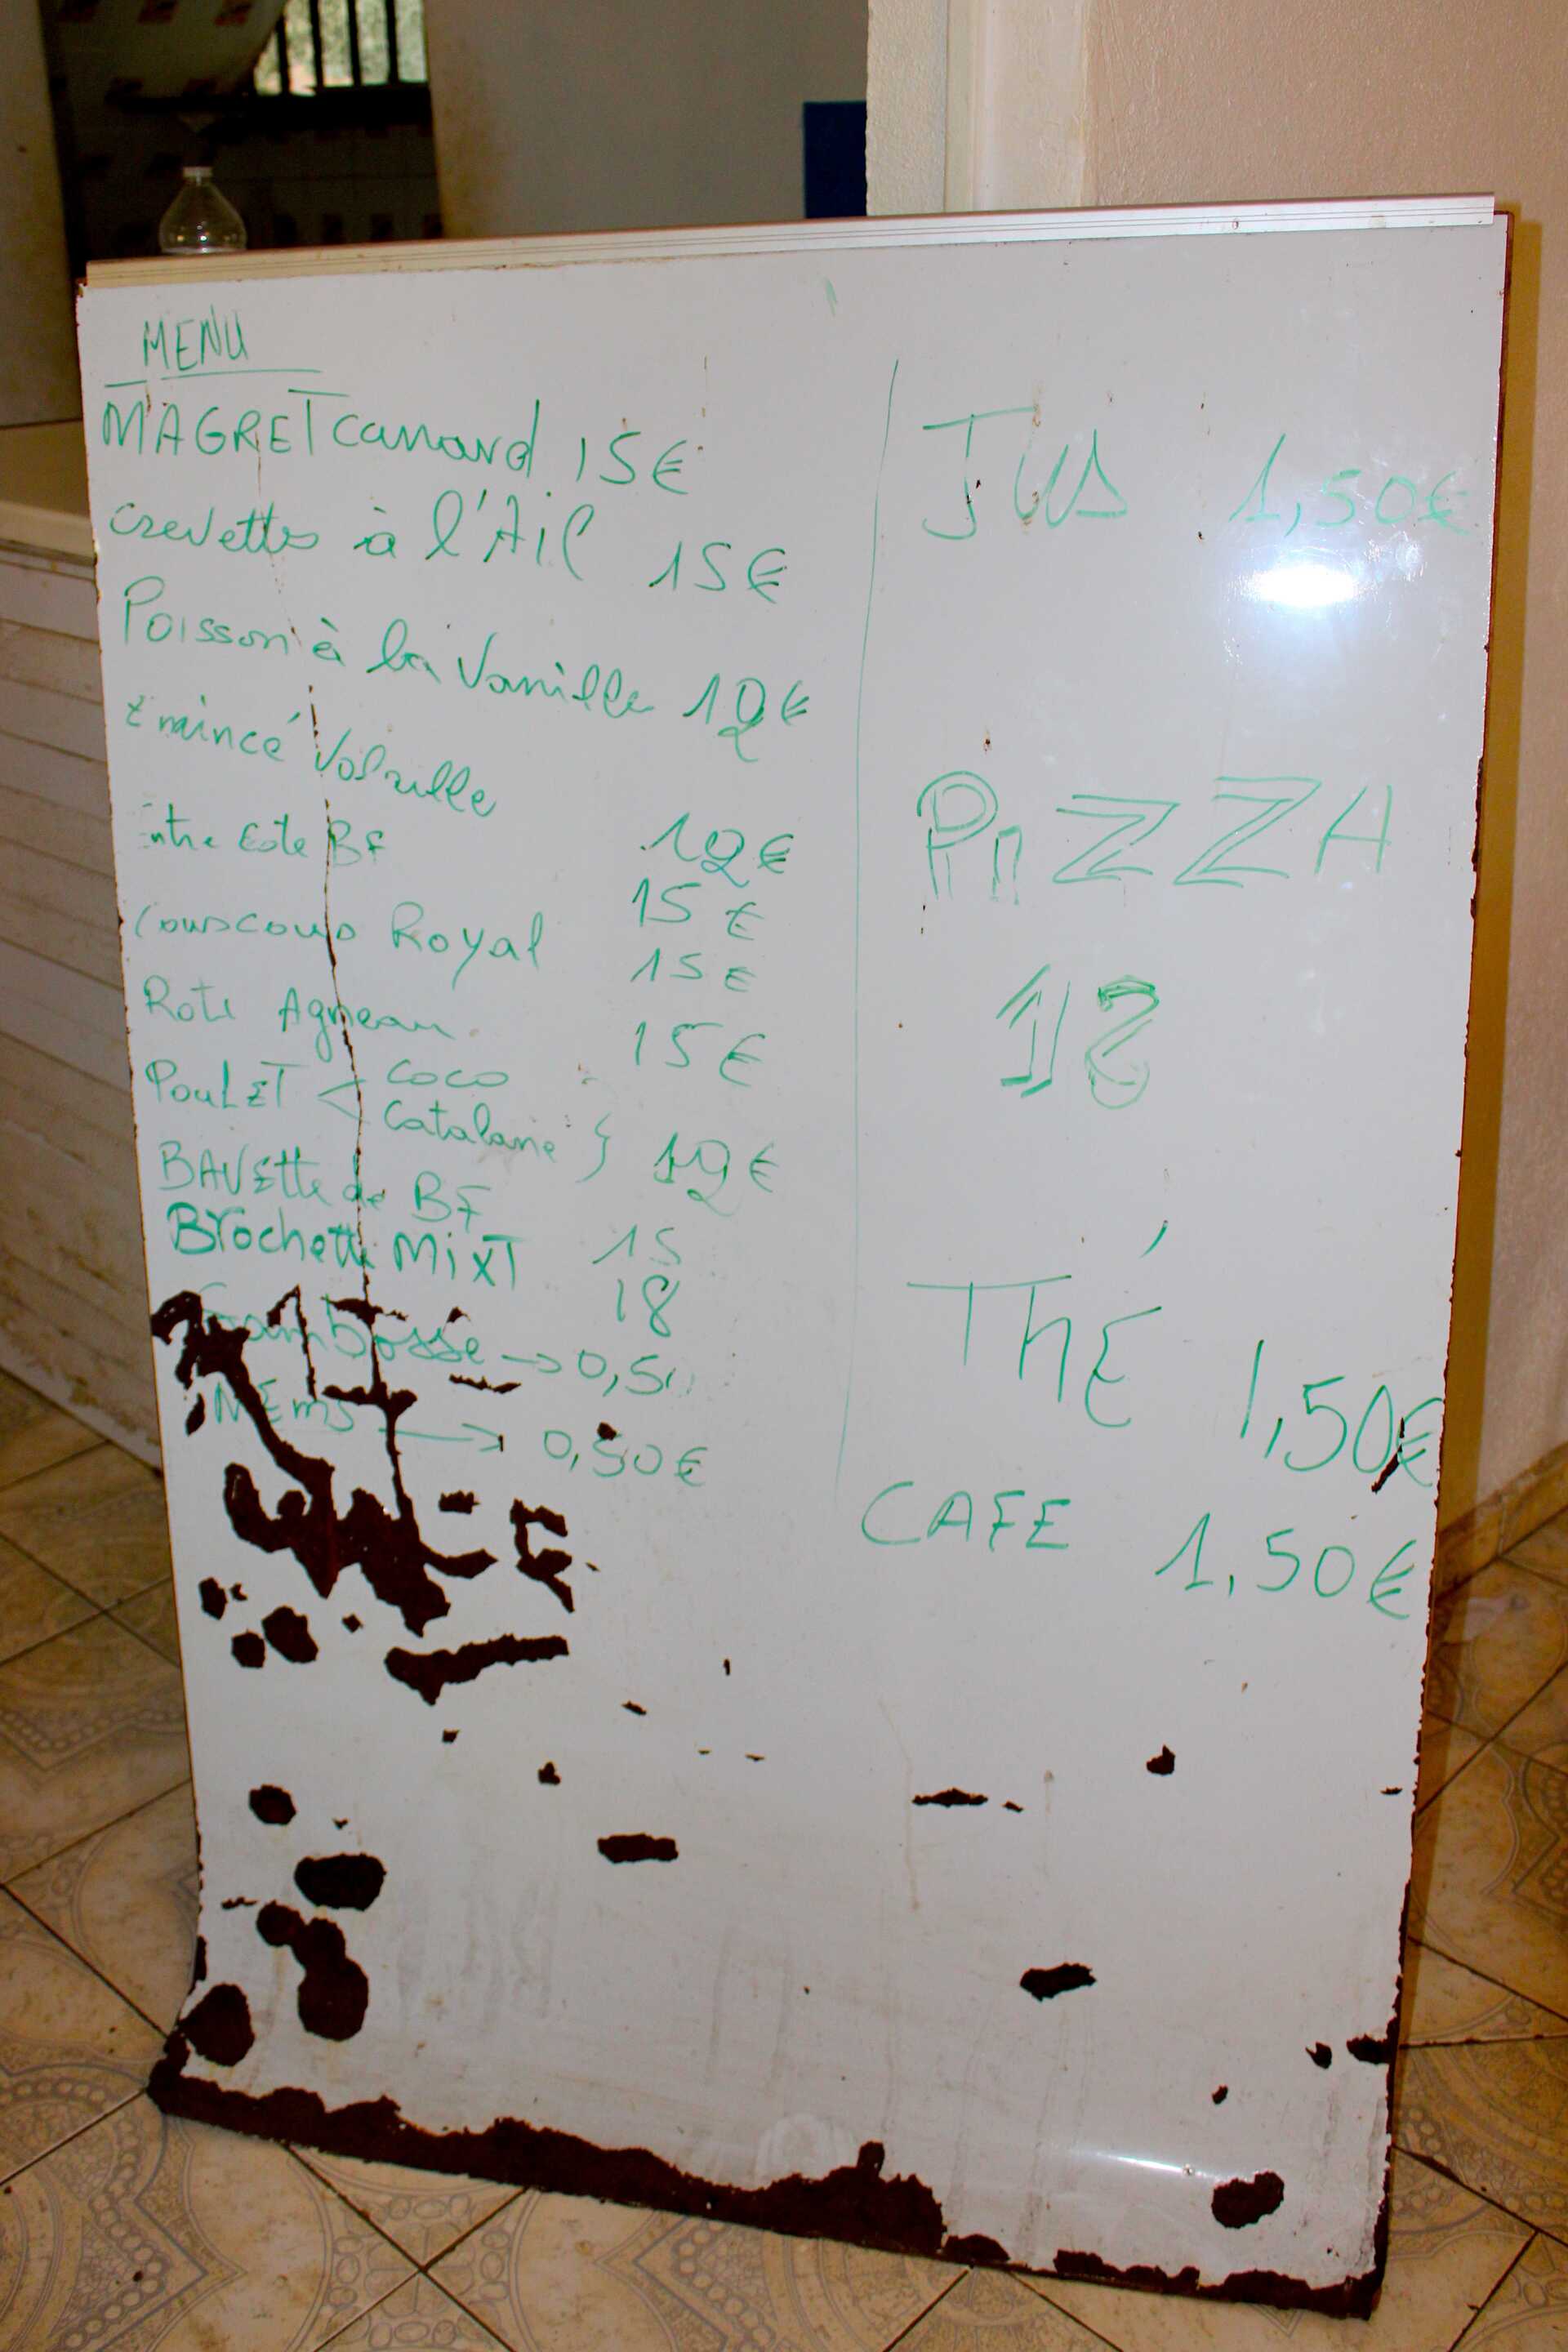 MENU
MAGRET canard 15€
crevettes à l'Ail 15€
Poisson à la Vanille 12€
Emincé Volaille 12€
Entre Côte BF 15€
Couscous Royal 15€
Roti Agneau 15€
PoulET < coco
catalane } 12€
BAVEtte de BF 15
Brochette MixT 18
0,50
NEms → 0,50€
Jus 1,50€
PiZZA
12
ThÉ 1,50€
CAFE 1,50€